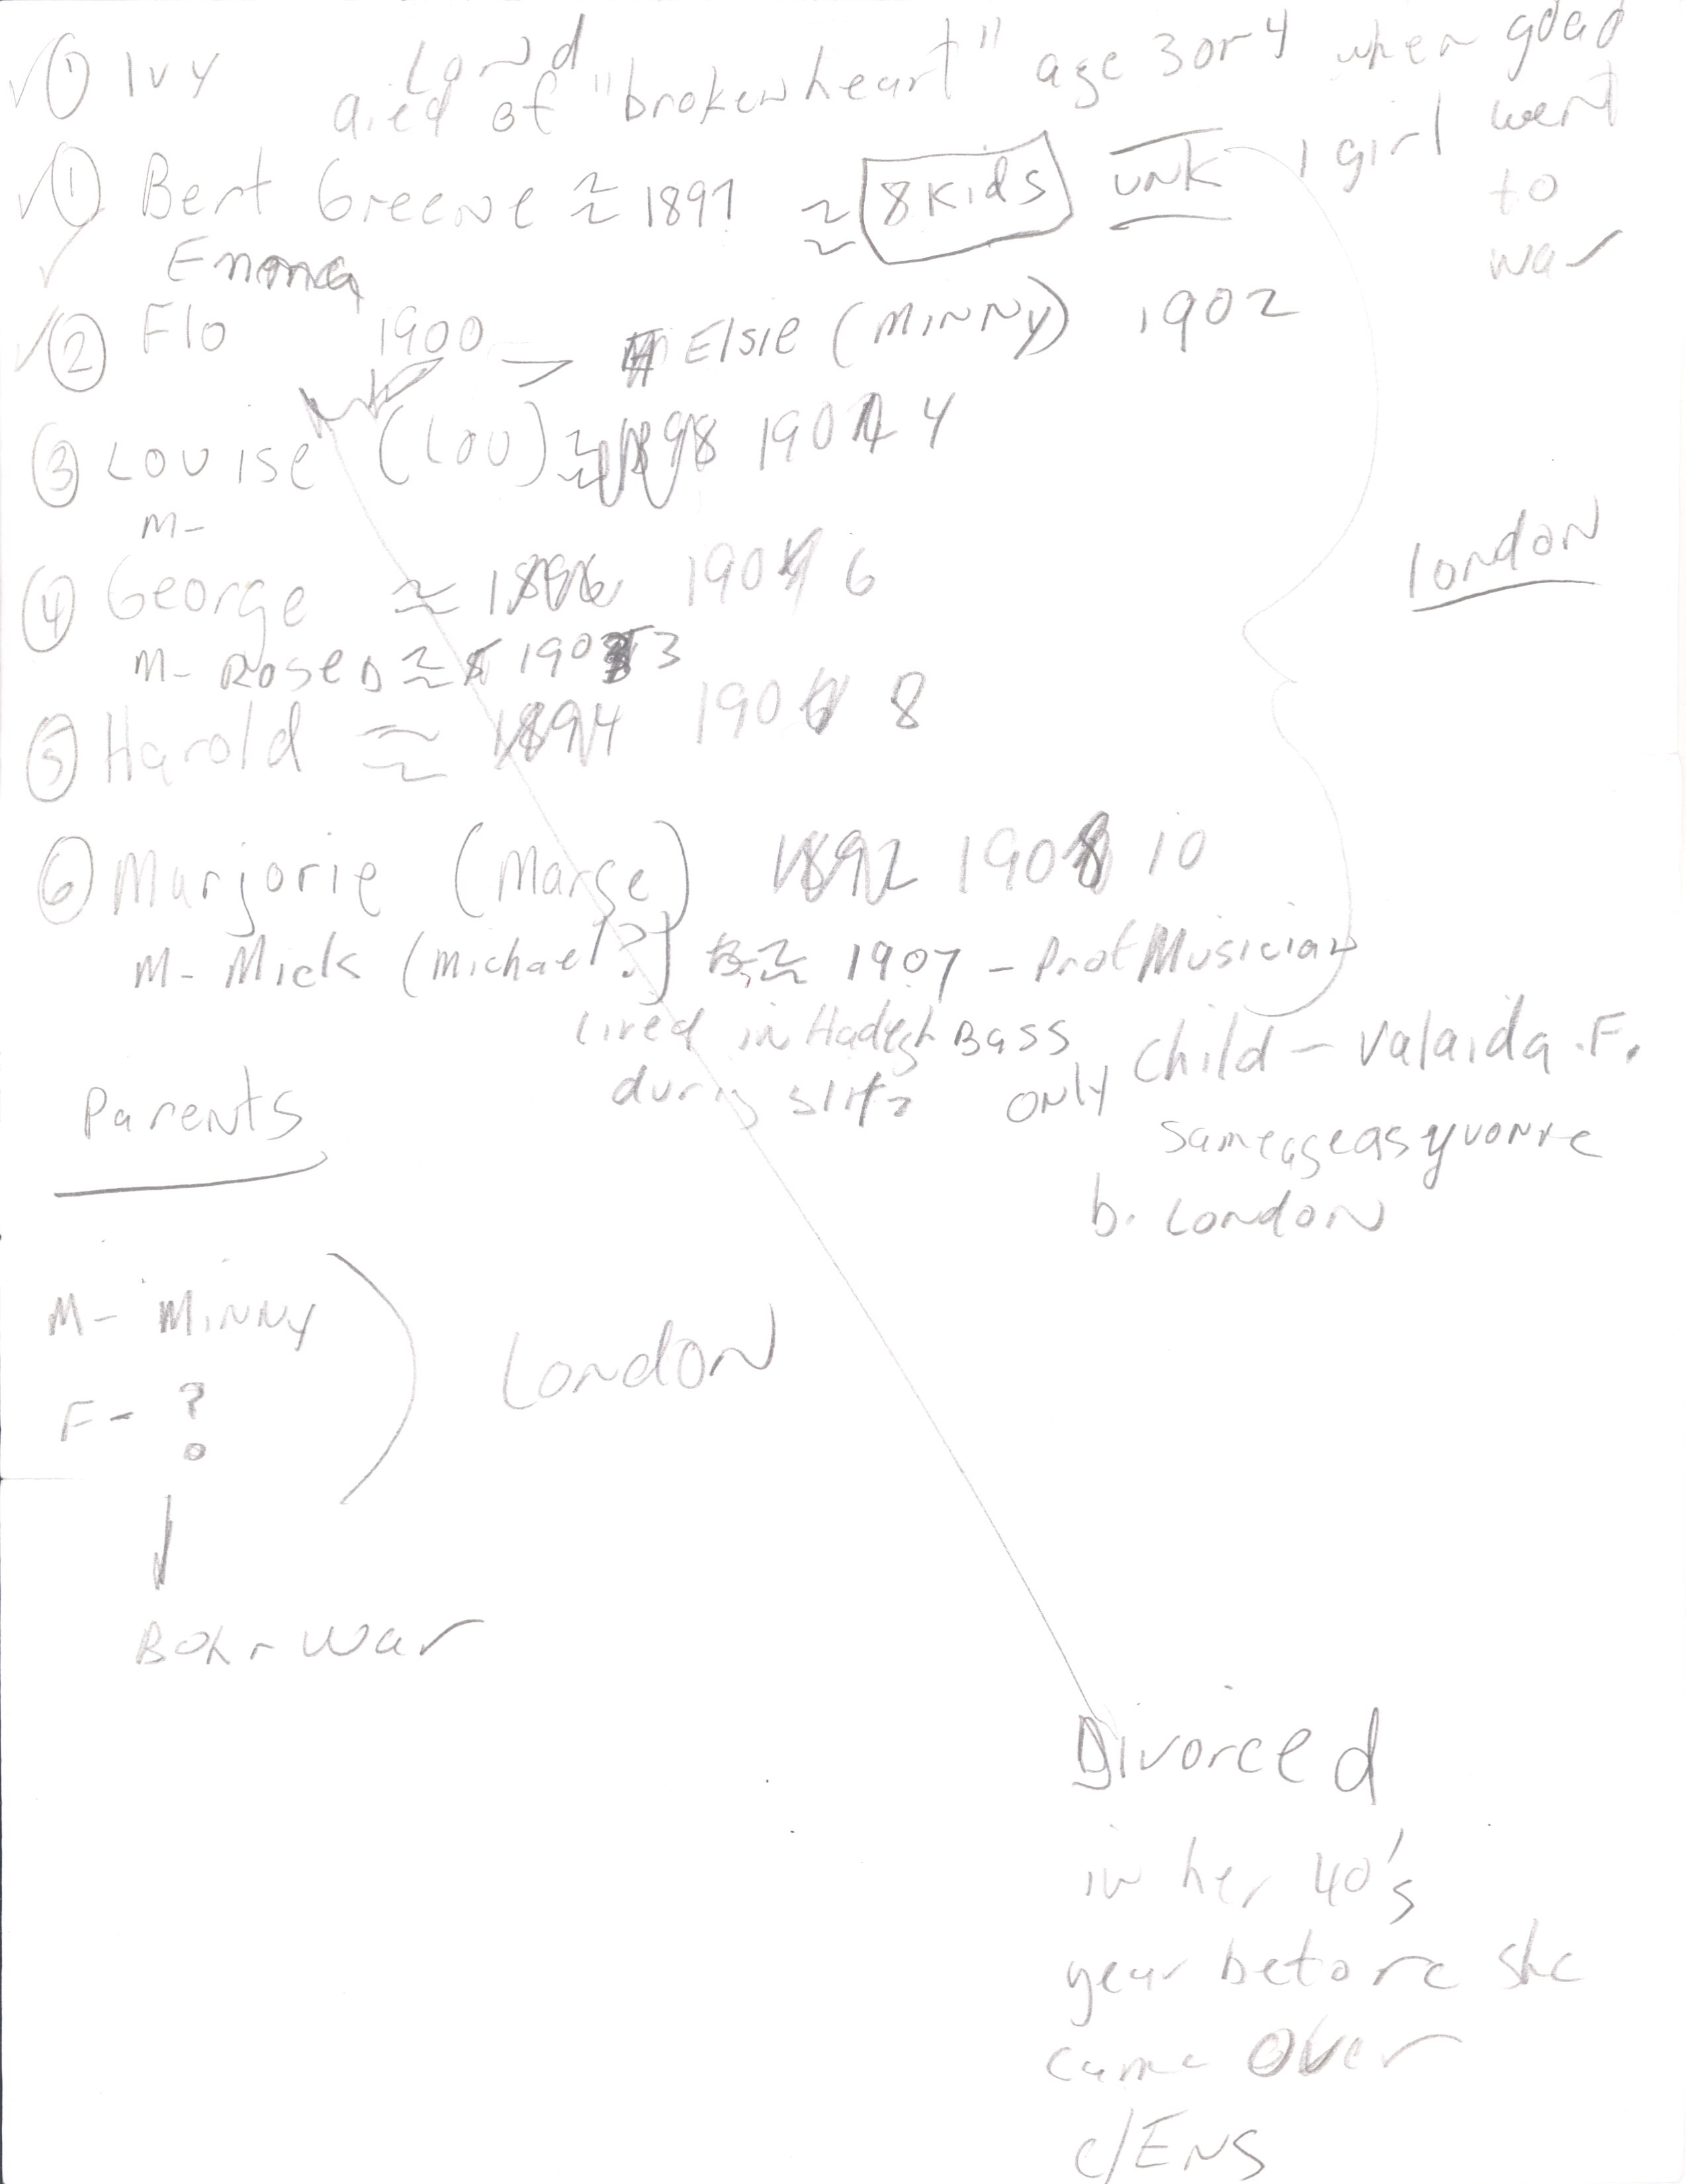 ✓① Ivy Lond
died of "broken heart" age 3 or 4 when gdad went to war
✓① Bert Greene ≈ 1897 ≈ 8 Kids UNK 1 girl
✓ Emma
✓② Flo 1900 → Elsie (MINNY) 1902
③ Louise (Lou) ≈ 1898 1901 4
M-
④ George ≈ 1896 190 6
M- Rose D ≈ 190 3
london
⑤ Harold ≈ 1894 190 8
⑥ Marjorie (Marge) 1892 1908 10
M- Mick (Michael?) B ≈ 1907 - Prof Musician
lived in Bass
during
only child - Valaida F.
same age as yvonne
b. London
Parents
M- MINNY
F- ?
London
Bohr War
Divorced
in her 40's
year before she
came over
c/ENS